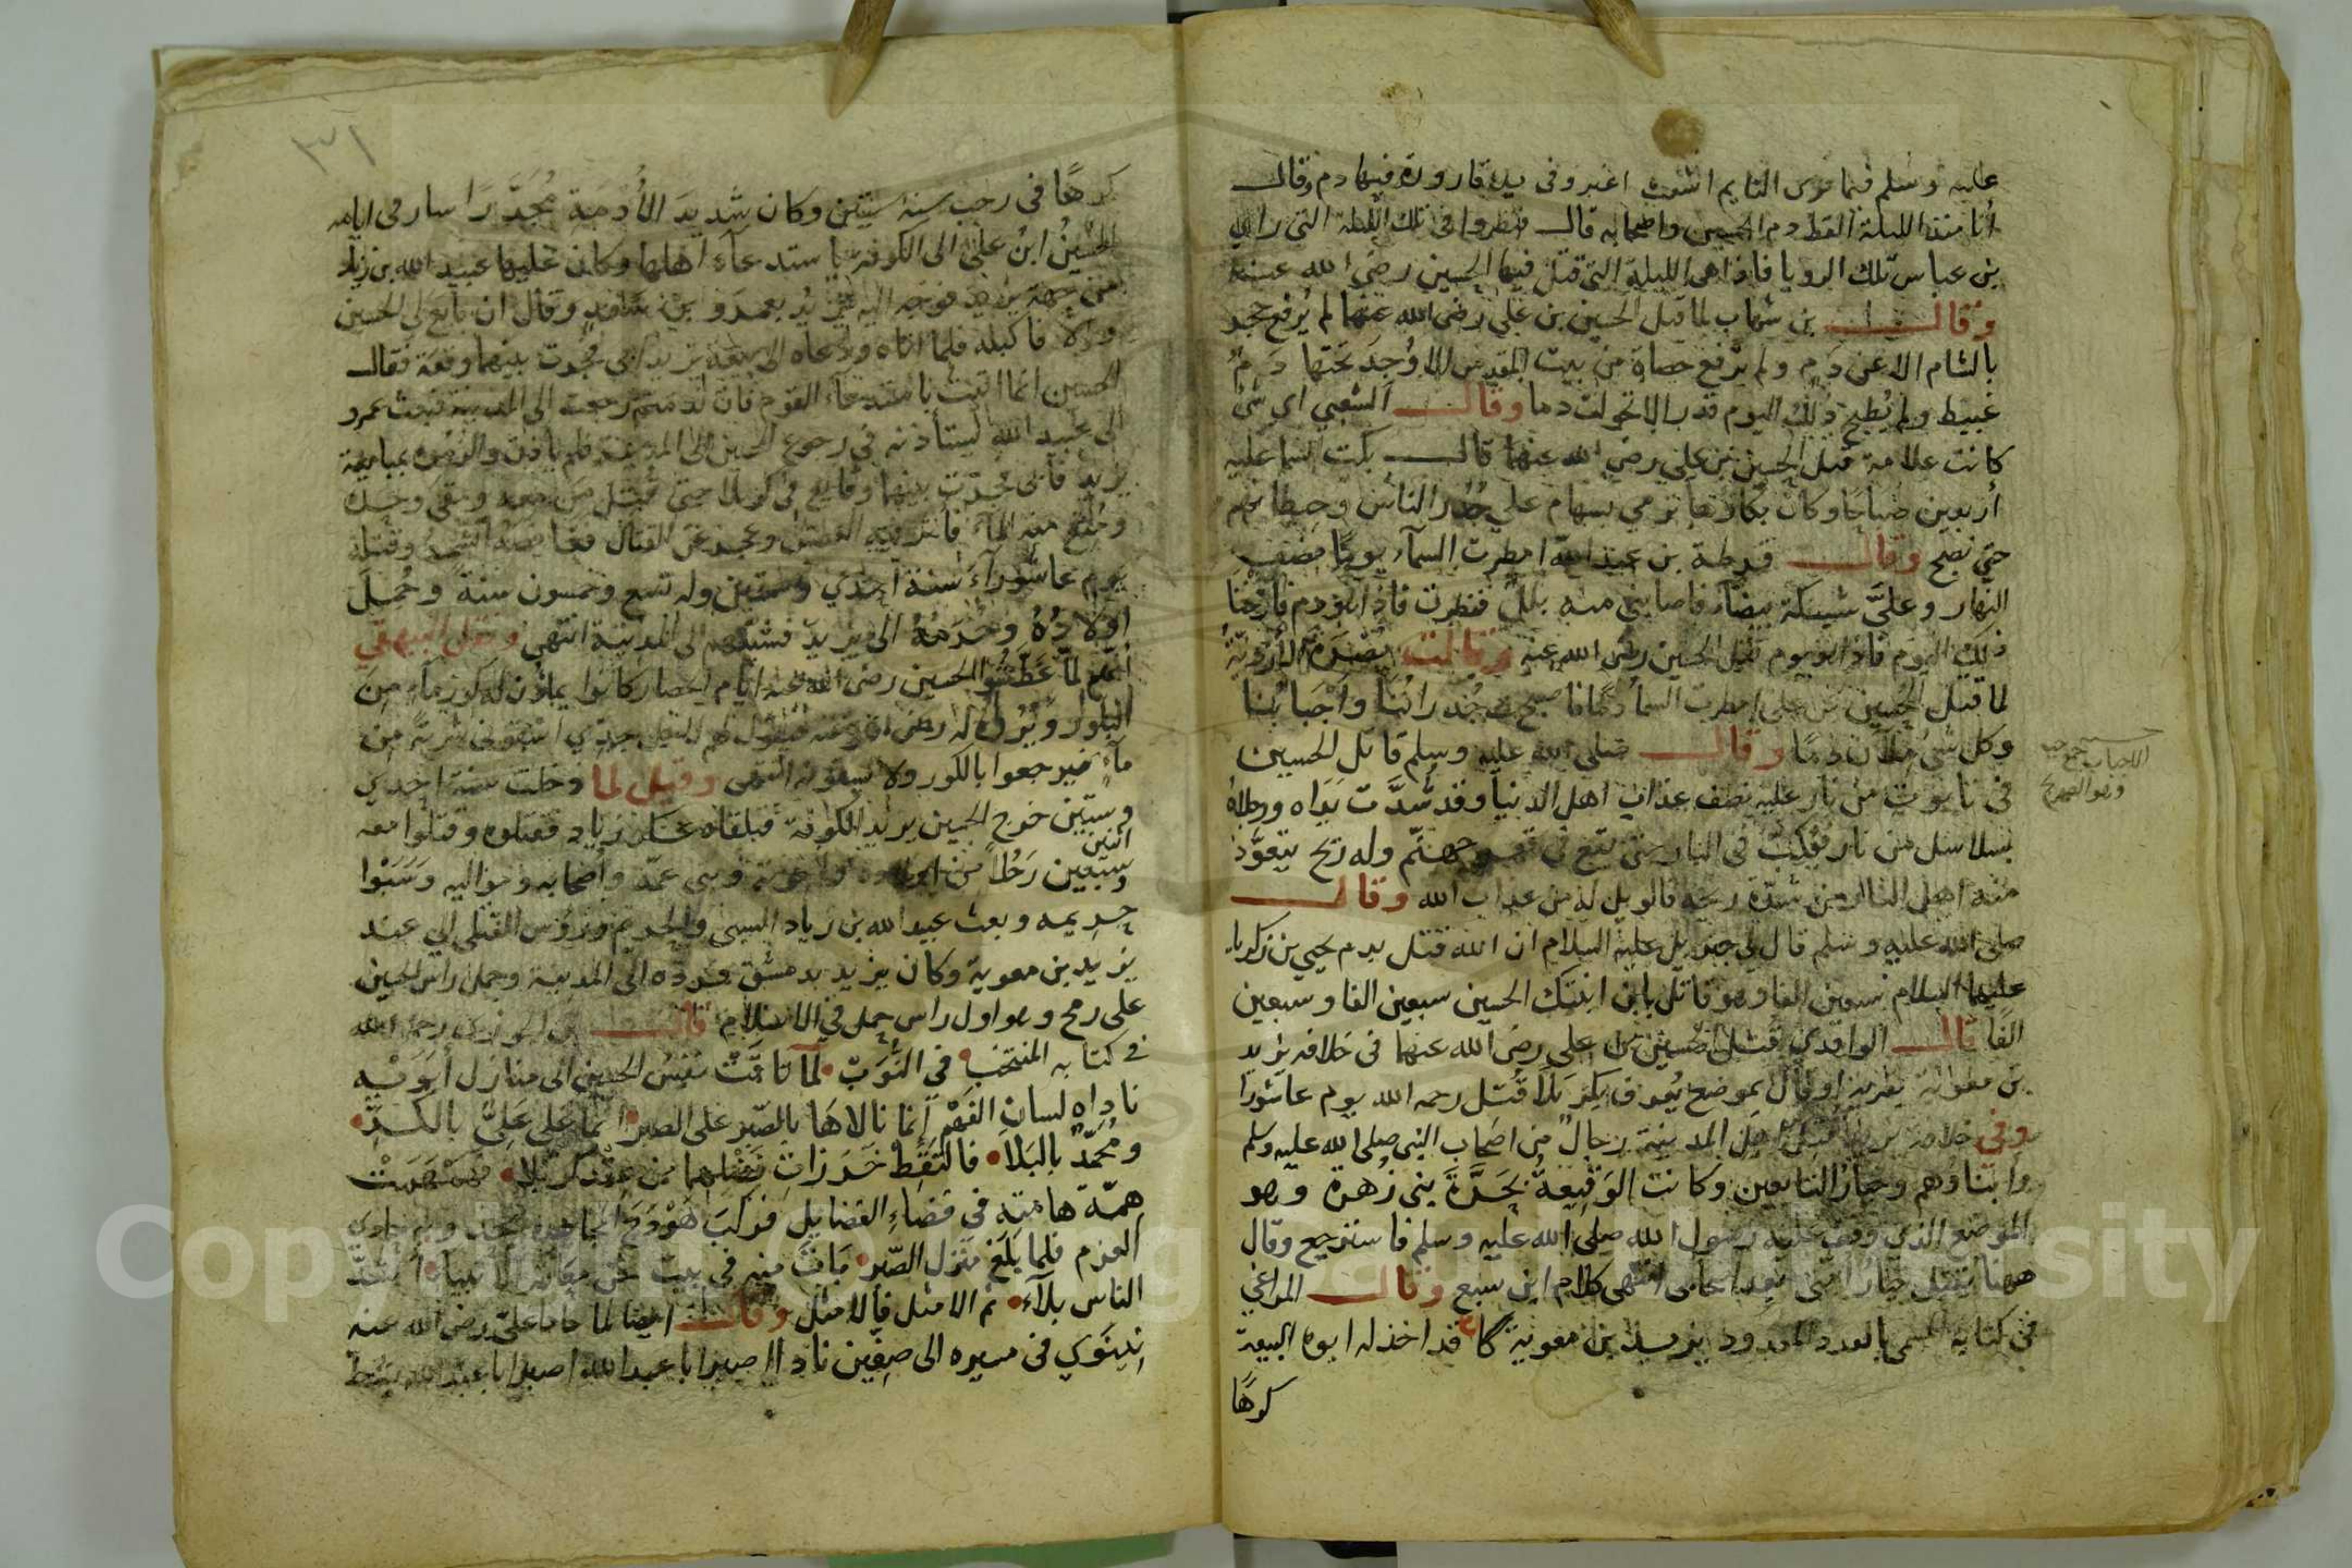 عليه وسلم فيما يرى النايم اشعث اغبر وفى يده قارورة فيها دم وقال
أنا منذ الليلة القط دم الحسين واصحابه قال فنظروا فى تلك الليلة التى راى
بن عباس تلك الرويا فاذا هى الليلة التى قتل فيها الحسين رضى الله عنه
وقال بن شهاب لما قتل الحسين بن على رضى الله عنهما لم يُرفع حجر
بالشام الا عن دم ولم يرفع حصاة من بيت المقدس الا وُجدَ تحتها دمٌ
عبيط ولم يُطبخ ذلك اليوم قدر الا تحولت دما وقال الشعبي اي شئ
كانت علامة قتل الحسين بن علي رضي الله عنهما قال بكت السما عليه
أربعين صباحا وكان بكاوها ترمي بسهام علي جُدُر الناس وحيطانهم
حتي تصبح وقال قرطة بن عبد الله امطرت السمآء يومًا نصف
النهار وعليَّ شبيكة بيضآء فاصابني منه بللٌ فنظرت فاذا هو دم فارخنا
ذلك اليوم فاذا هو يوم قتل الحسين رضى الله عنه وقالت نضرة الأزديّة
لما قتل الحُسين بن على امطرت السمآ دمًا فاصبحت جُدراننا واجْبَابُنا
وكل شئ ملآن دمًا وقال صلى الله عليه وسلم قاتل الحسين
فى تابوت من نار عليه نصف عذاب اهل الدنيا وقد شُدَّت يَدَاه ورجلاهُ
بسلاسل من نار فيُكبّ فى النار حتى يقع فى قعر جهنّم وله ريح يتعوَّذ
منه اهل النار من شدّة ريحه فالويل له من عذاب الله وقال
صلى الله عليه وسلم قال لي جبريل علية السلام ان الله قتل بدم يحيي بن زكريا
عليهما السلام سبعين الفا وهو قاتل بابن ابنتك الحسين سبعين الفا وسبعين
الفًا قال الواقدي قتل الحسين بن على رضى الله عنهما فى خلافه يزيد
بن معوية بقرية او قال بموضع يُعرف بكربَلآ قُتل رحمه الله يوم عاشورا
وفى خلافة يزيد قتل اهل المدينة رجال من اصحاب النبى صلى الله عليه وسلم
وابناؤهم وخيارُ التابعين وكانت الوَقِيعةُ بحَرَّةَ بنى زُهرة وهو
الموضع الذي وقف عليه رسول الله صلى الله عليه وسلم فاسترجع وقال
ههنا يقتل خيارُ امتى بعد اصحابى انتهى كلام ابن سبع وقال المراغي
فى كتابه المسمى بالعدد المعدود يزيد بن معوية كان قد اخذ له ابوه البيعة
كرهًا
الاجباب جمع جب
وهو الصهريج
٣١
كرهًا فى رجب سنة ستين وكان شديدَ الأُدْمَة مُجَدَّرًا سار فى ايامه
الحُسينُ ابنُ علىٍّ الى الكوفة باستدعآءِ اهلها وكان عليها عبيد الله بن زياد
من جهة يزيد فوجه اليه بعمرو بن سعد وقال ان بايع لى الحسين
والا فاكبله فلما اتاه ودعاه الى بيعة يزيد ابى فجرت بينهما وقعة فقال
الحسين انما اتيت باستدعآء القوم فان رجعت الى المدينة فبعث عمرو
الى عبيد الله ليستأذنه فى رجوع الحسين الى المدينة فلم يأذن والزمه بمبايعة
يزيد فأبى فجرت بينهما وقايع فى كربلا حتى قُتل من معه وبقى وحده
ومُنع منه المآء فاثر فيه العطش وعجز عن القتال وقتله
يوم عاشورآءَ سنة احدي وستين وله تسع وخمسون سنة وحُملَ
اولادُهُ وحُرمُهُ الى يزيد فسيّرهم الى المدينة انتهى ونقل البيهقى
انهم لما عَطَّشُوا الحسين رضى الله عنه ايام الحصار كانوا يملؤن له كوز مآءٍ مِن
البلور ويُرُوه له رضى الله عنه فيقول لهم اسقونى شربة من
مآءٍ فيرجعوا بالكوز ولا يسقونه انتهى وقيل لما دخلت سنة احدي
وستين خرج الحسين يريد الكوفة فبلقاه عسكر زياد فقتلوه وقتلوا معه
اثنين
وسبعين رَجُلاً من اولاده واخوته وبنى عمّه واصحابه ومواليه وسَبَوْا
حريمه وبعث عبيد الله بن زياد السبى والحريم ورؤس القتلى الي عند
يزيد بن معوية وكان يزيد بدمشق فردّه الى المدينة وحمل راس الحسين
على رمح وهو اول راس حمل في الاسلام قال بن الجوزى رحمه الله
في كتابه المنتخب في النُّوَبّ لمّا تاقَتْ نفسُ الحسين الى منازل أبَوَيْه
ناداه لسان الفَهْمِ إنما نالاهَا بالصّبرِ على الصبر انما على عَلِيٍّ بالكَدِّ
ومُحَمّد بالبَلا فالتقطْ خَرَزاتِ فَضْلهما من عِقْد كربلا فنهضت
همّة هامّته فى فضاءِ الفضايل فركبَ هَوْدَجَ
العزم فلما بلغ منزل الصّبر بَاتَ منه فى بيت اشدُّ
الناس بلآءً ثم الامثل فالامثل وقال ايضا لما حاذا علىّ رضى الله عنه
نينَوي فى مسيره الى صِفّين نادا اصبر ابا عبد الله اصبر ابا عبد الله بشط